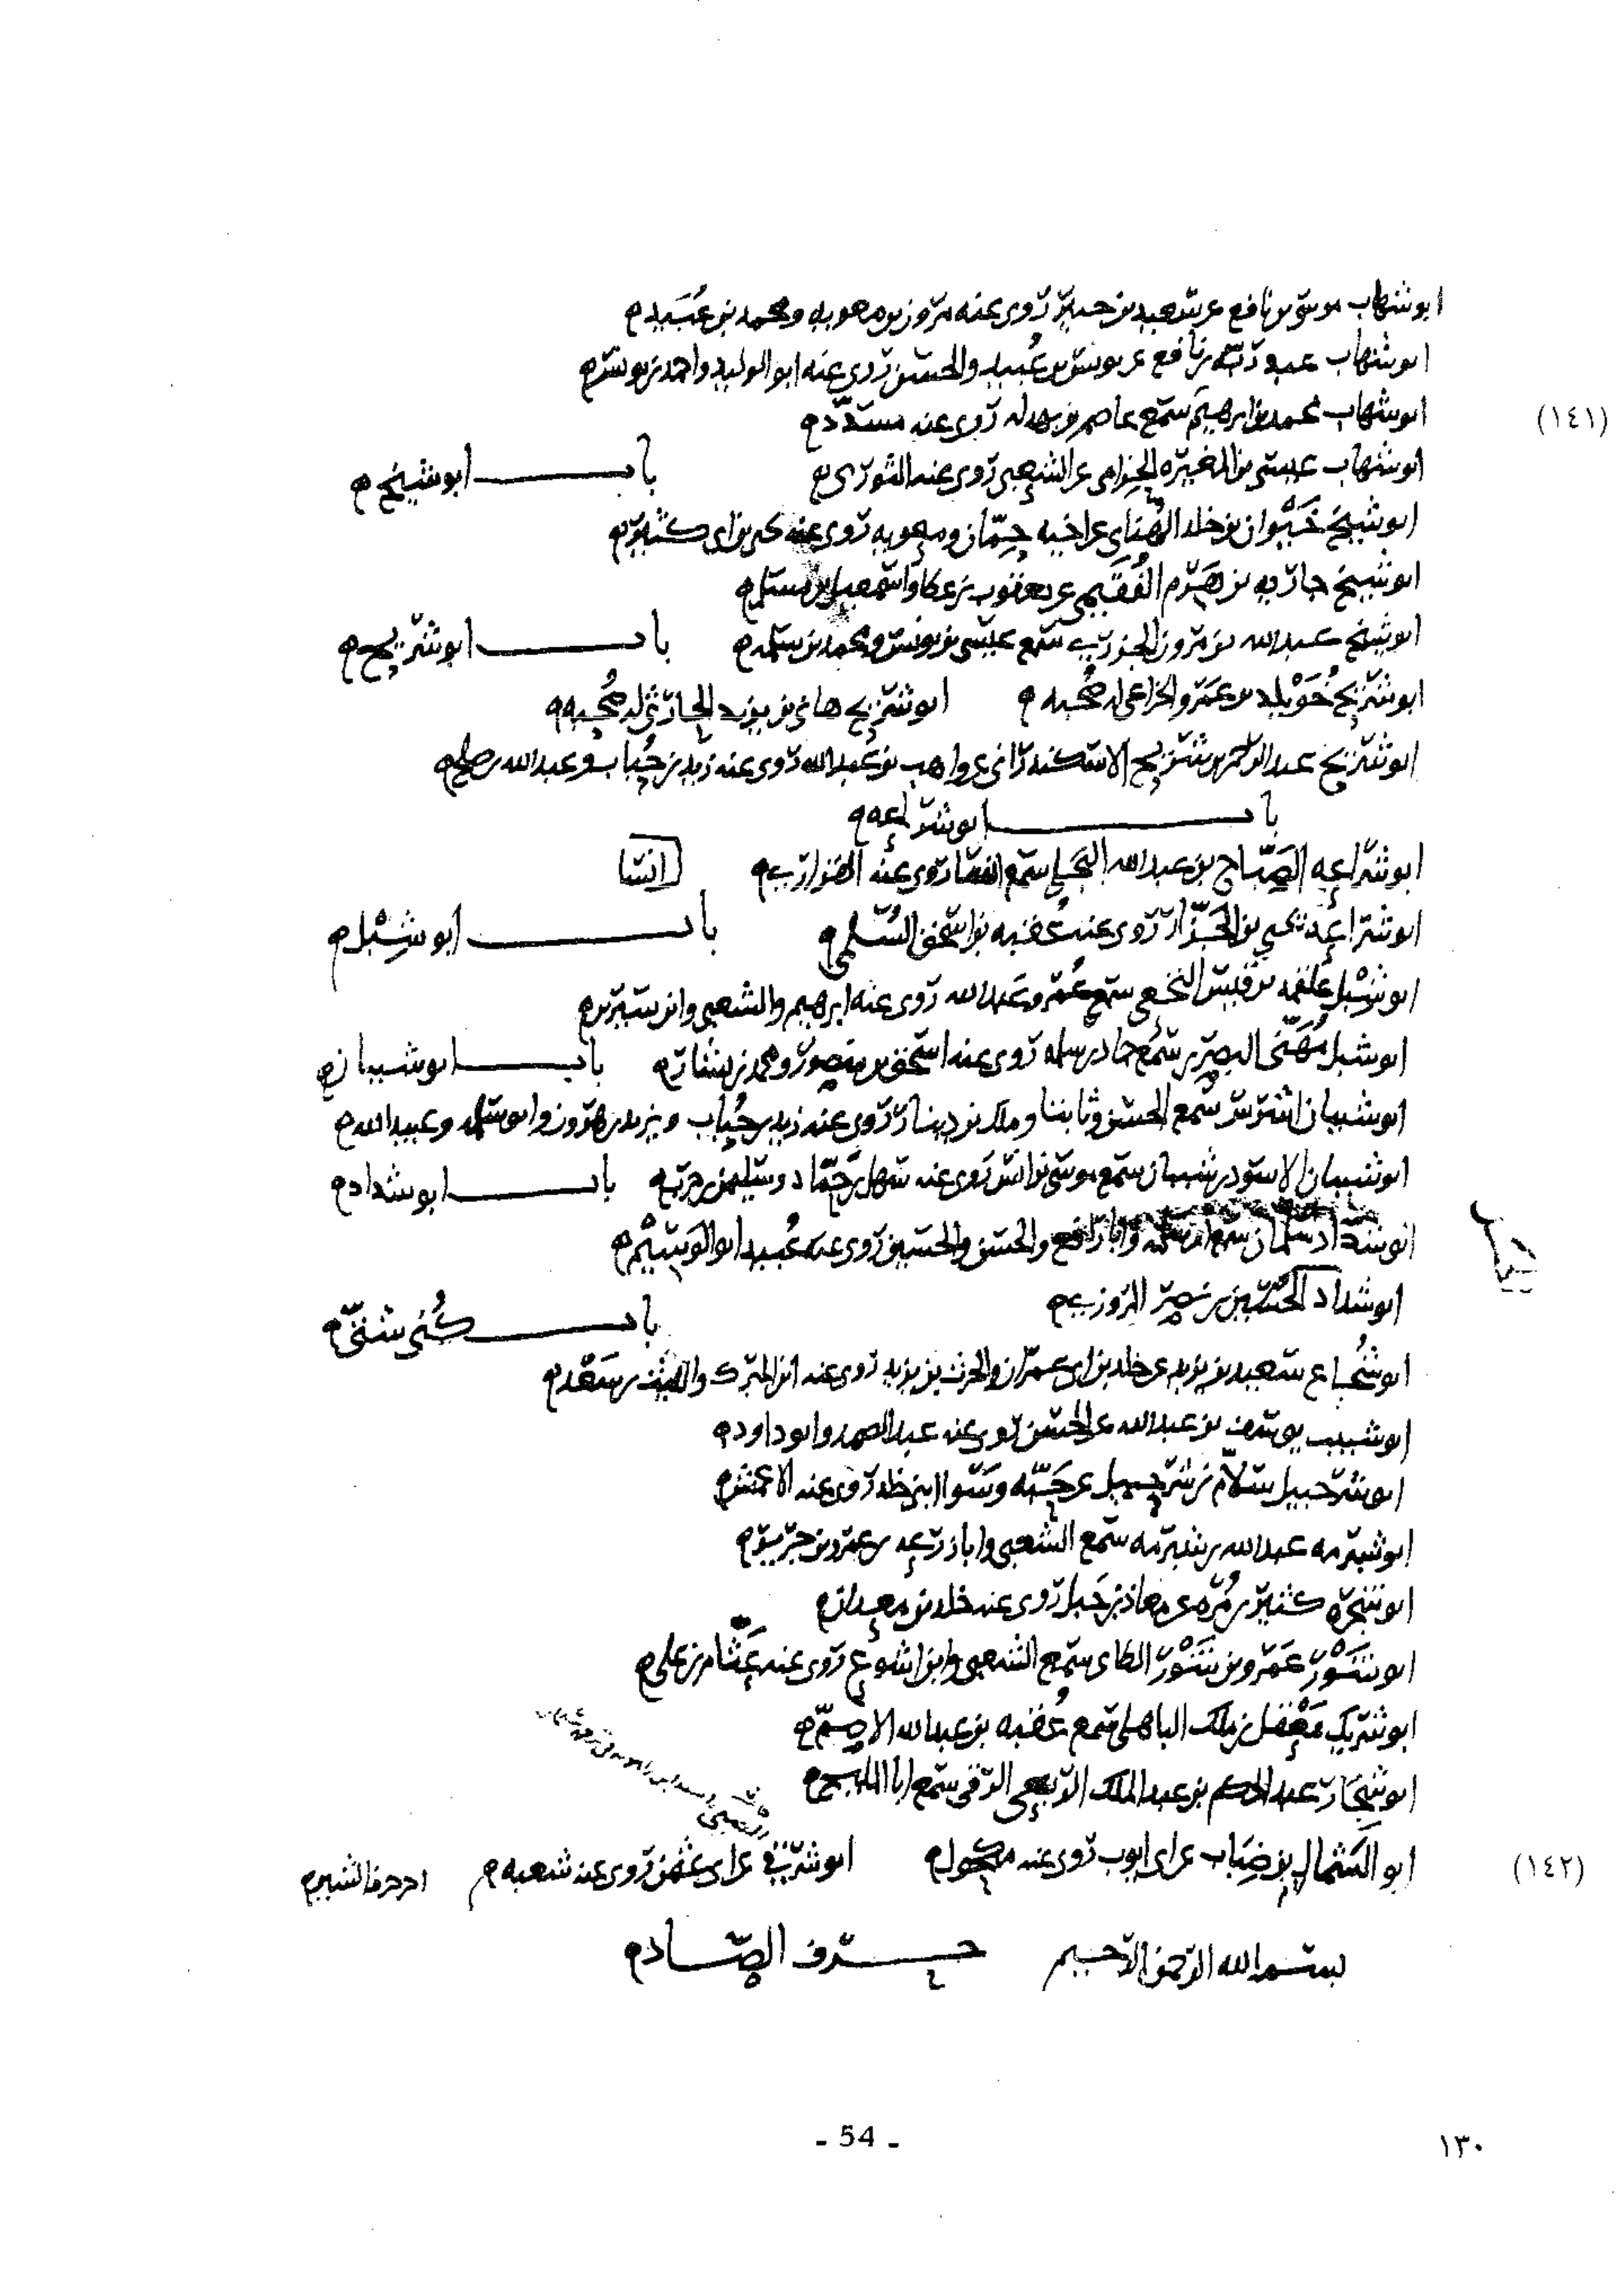 ابو شهاب موسى بن نافع عن سعيد بن جبير روى عنه مرون بن معويه ومحمد بن عبيد
ابو شهاب عبد ربه بن نافع عن يونس بن عبيد والحسن روى عنه ابو الوليد واحمد بن يونس
ابو شهاب محمد بن ابرهيم سمع عاصم بن بهدله روى عنه مسدد
(١٤١)
ابو شهاب عيسى بن المغيره الحزامى عن الشعبى روى عنه الثورى باب ابو شيخ
ابو شيخ خيوان بن خلد الهنائى عن اخيه حمان ومعويه روى عنه يحيى بن ابى كثير
ابو شيخ جاريه بن هرم الفقيمى عن يعقوب بن عطا واسمعيل بن مسلم
ابو شيخ عبدالله بن مرون الجزرى سمع عيسى بن يونس ومحمد بن سلمه باب ابو شريح
ابو شريح خويلد بن عمرو الخزاعى له صحبه ابو شريح هانى بن يزيد الحارثى له صحبه
ابو شريح عبد الرحمن بن شريح الاسكندرانى عن واهب بن عبدالله روى عنه زيد بن حباب وعبدالله بن صلح
باب ابو شراعه
ابو شراعه الصباح بن عبدالله البجلى سمع انسا روى عنه الفزارى انسا
ابو شراعه يحيى بن الجزار روى عنه عقبه بن اسحق السلمى باب ابو شبل
ابو شبل علقمه بن قيس النخعى سمع عمر وعبدالله روى عنه ابرهيم والشعبى وابن سيرين
ابو شبل مهنى البصرى سمع حماد بن سلمه روى عنه اسحق بن منصور ومحمد بن بشار باب ابو شيبان
ابو شيبان اشرس سمع الحسن وثابتا وملك بن دينار روى عنه زيد بن حباب ويزيد بن هرون وابو سلمه وعبيدالله
ابو شيبان الاسود بن شيبان سمع موسى بن انس روى عنه سهل بن حماد وسليمن بن حرب باب ابو شداد
ابو شداد سلمان سمع ام سلمه وابا رافع والحسن والحسين روى عنه عبيد ابو الوسيم
ابو شداد الحسين بن نصر المروزى
باب كنى شتى
ابو شجاع سعيد بن يزيد عن خلد بن ابى عمران والحرث بن يزيد روى عنه ابن المبرك والليث بن سعد
ابو شبيب يوسف بن عبدالله عن الحسن روى عنه عبد الصمد وابو داود
ابو شرحبيل سلام بن شرحبيل عن حبه وسوا ابنى خلد روى عنه الاعمش
ابو شبرمه عبدالله بن شبرمه سمع الشعبى وابا زرعه بن عمرو بن جرير
ابو شجره كثير بن مره عن معاذ بن جبل روى عنه خلد بن معدان
ابو سنور عمرو بن سنور الطائى سمع الشعبى وابن اشوع روى عنه عثام بن على
ابو شريك معقل بن ملك الباهلى سمع عقبه بن عبدالله الاصم
ابو شجار عبد الحكم بن عبد الملك الربعى الرقى سمع ابا المليح
ابو الشمال بن ضباب عن ابى ايوب روى عنه مكحول ابو شريف عن ابى عثمن روى عنه شعبه اخر حرف الشين
(١٤٢)
بسم الله الرحمن الرحيم حرف الصاد
- 54 -
١٣٠